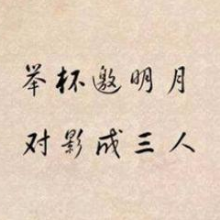 举杯邀明月
对影成三人